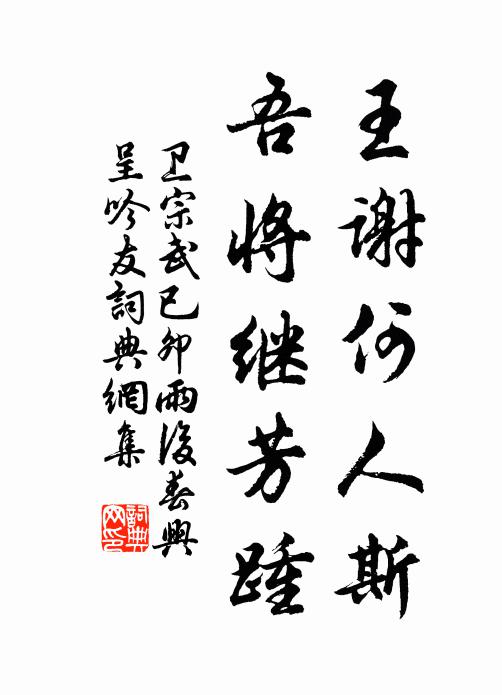 王谢何人斯
吾将继芳踵
卫宗武己卯雨後春興
呈吟友詞典網集
詞典
网印